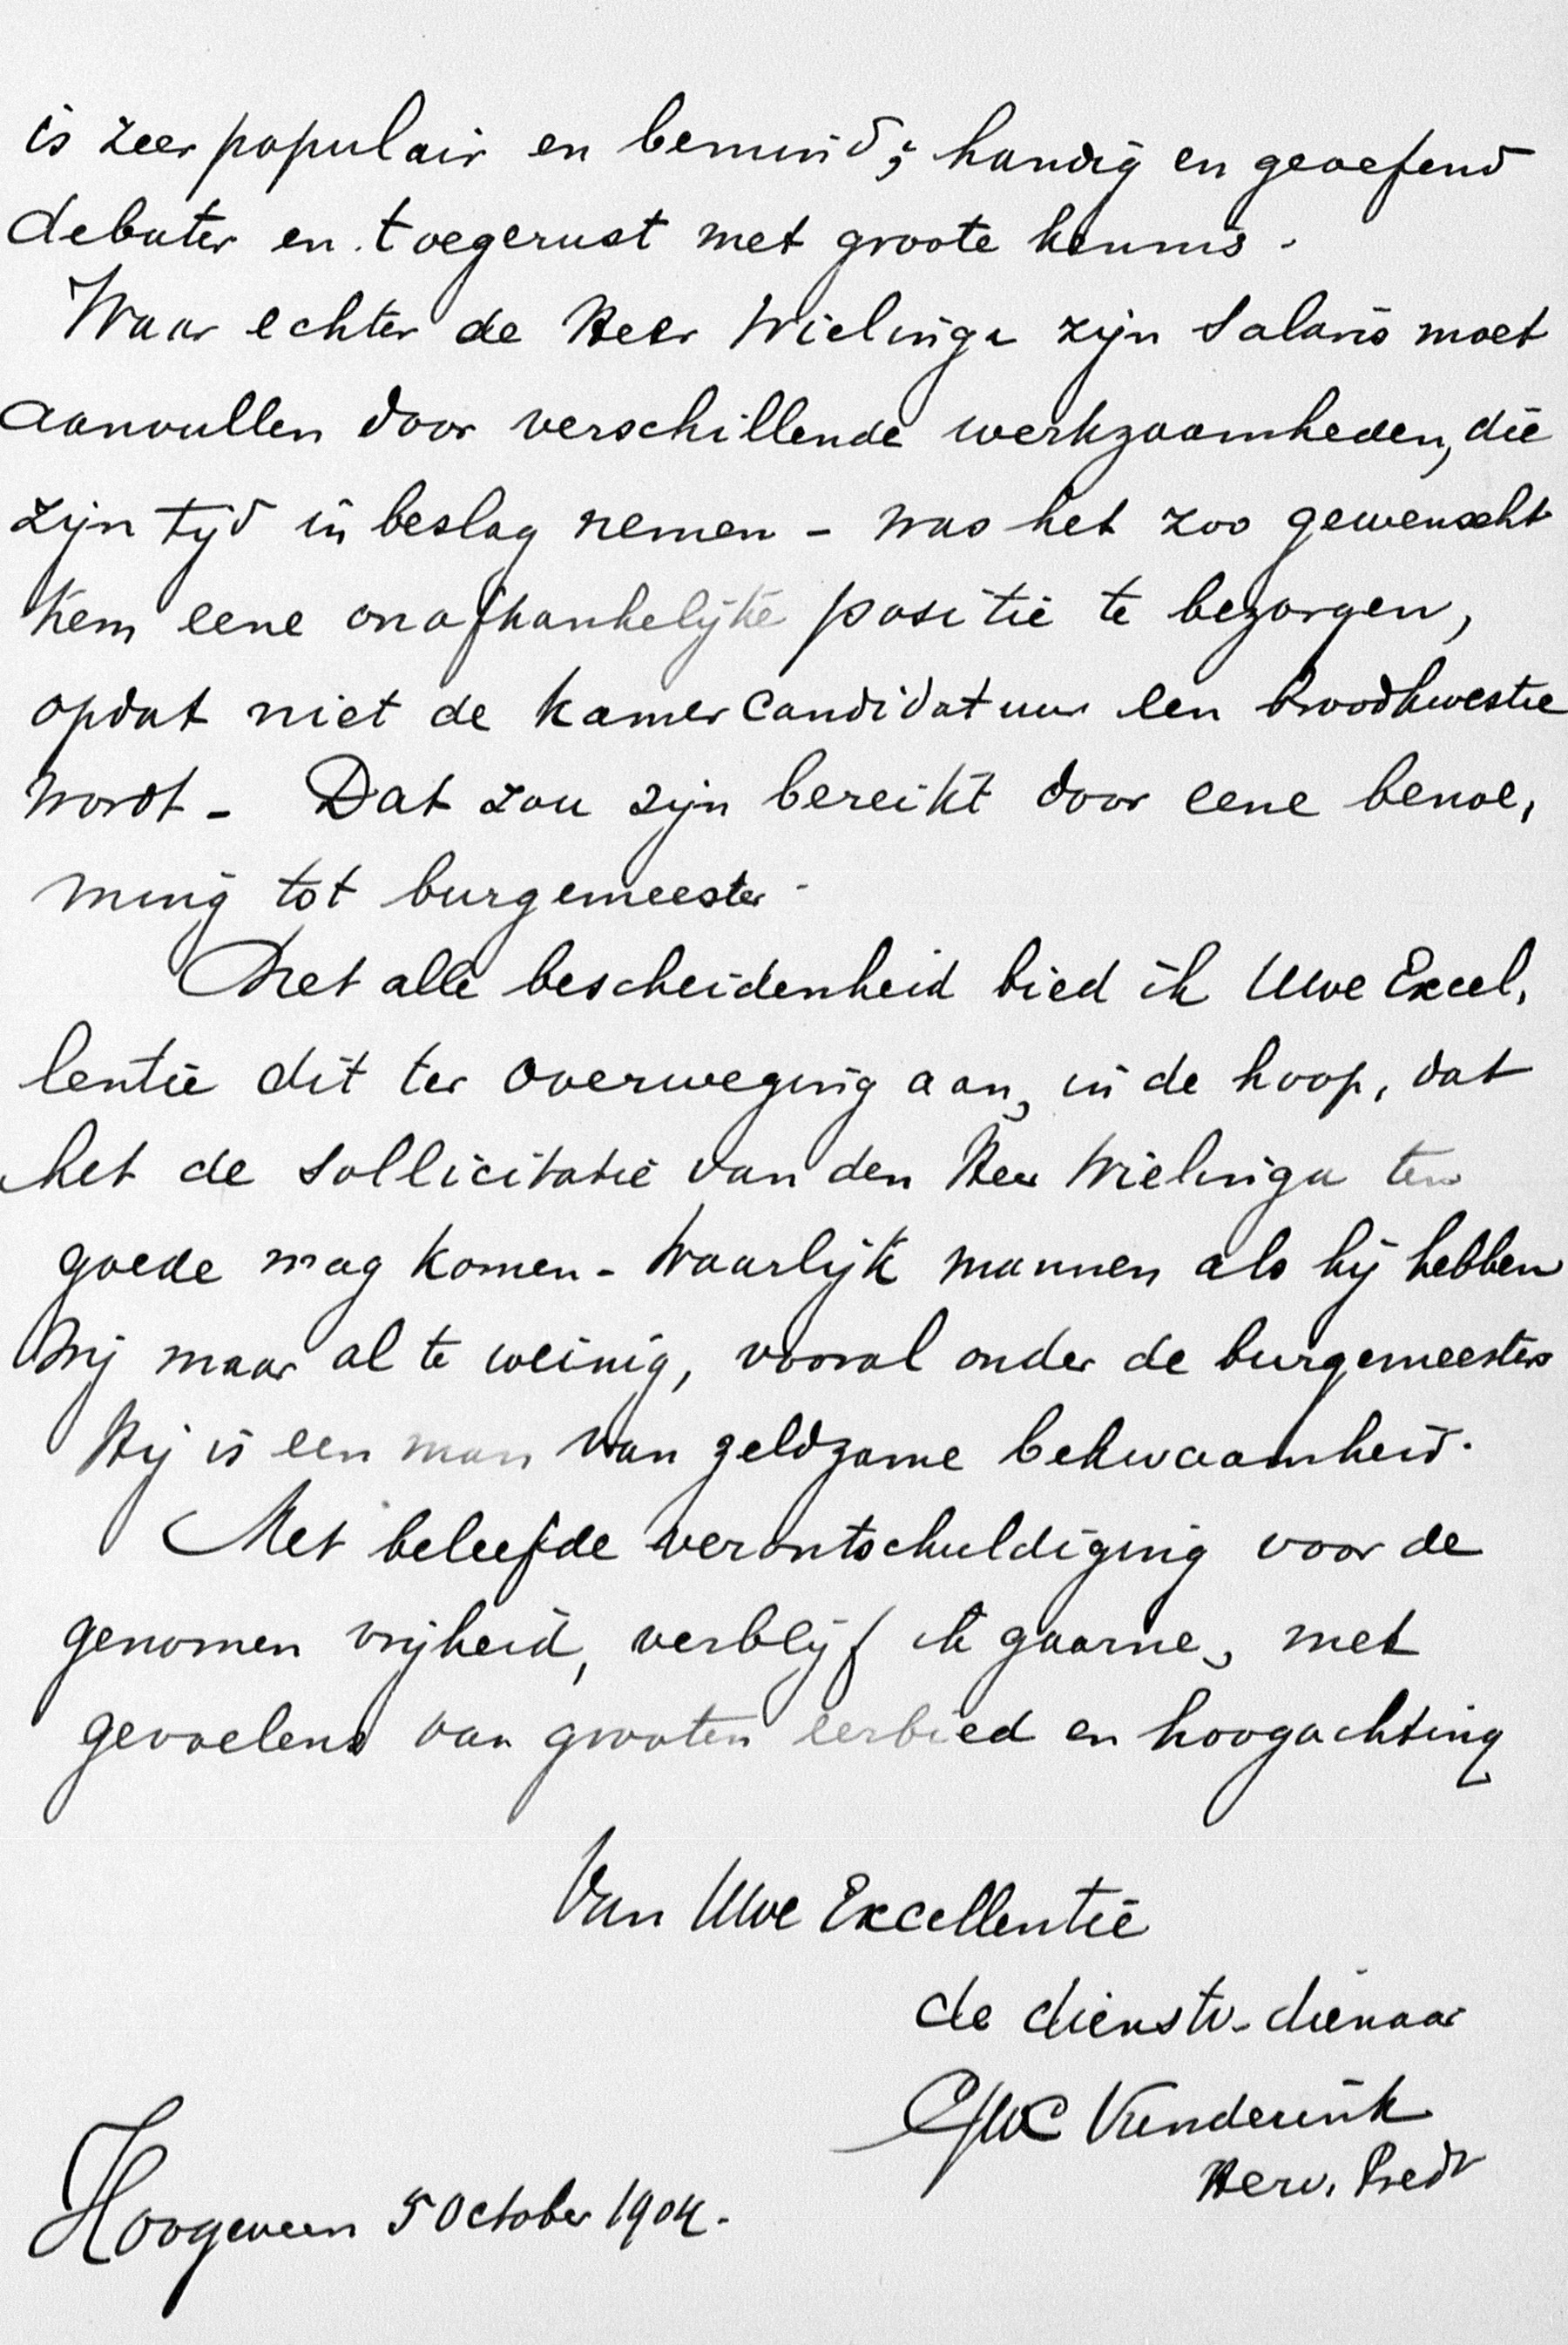 is zeer populair en bemind; handig en geoefend
debater en toegerust met groote kennis.
Waar echter de Heer Wielinga zijn salaris moet
aanvullen door verschillende werkzaamheden, die
zijn tijd in beslag nemen - was het zoo gewenscht
hem eene onafhankelijke positie te bezorgen,
opdat niet de kamercandidatuur een broodkwestie
wordt - Dat zou zijn bereikt door eene benoe,
ming tot burgemeester.
Met alle bescheidenheid bied ik Uwe Excel,
lentie dit ter overweging aan, in de hoop, dat
het de sollicitatie van den Heer Wielinga ten
goede mag komen - Waarlijk mannen als hij hebben
wij maar al te weinig, vooral onder de burgemeesters
Hij is een man van zeldzame bekwaamheid.
Met beleefde verontschuldiging voor de
genomen vrijheid, verblijf ik gaarne, met
gevoelens van grooten eerbied en hoogachting
Van Uwe Excellentie
de dienstv. dienaar
Herv. Predt
Hoogeveen 5 October 1904.